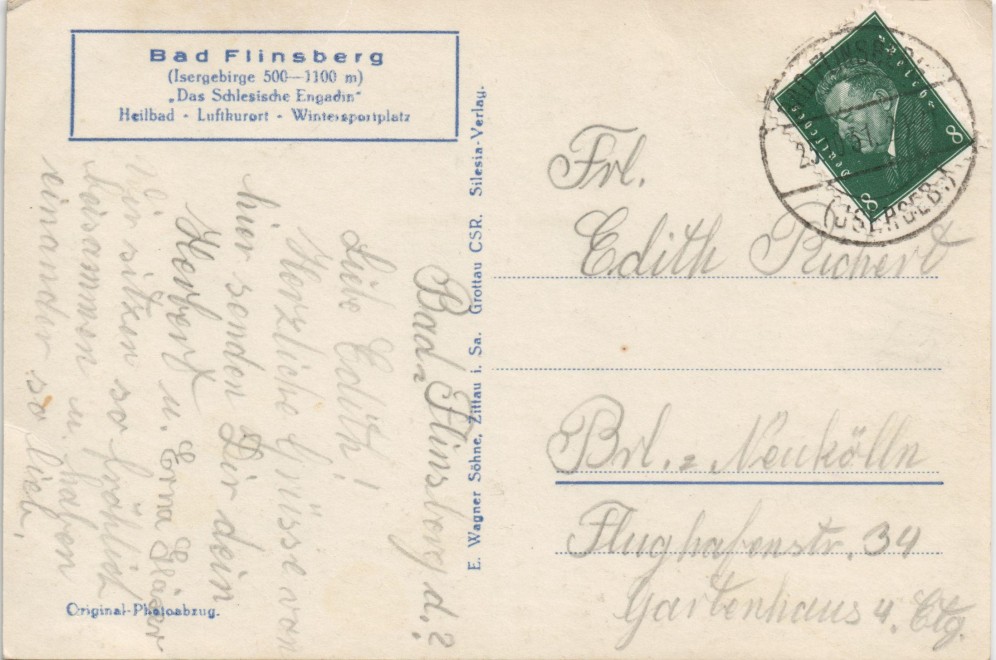 Bad Flinsberg
(Isergebirge 500—1100 m)
„Das Schlesische Engadin“
Heilbad - Luftkurort - Wintersportplatz
Bad= Flinsberg d. ?
Liebe Edith!
Herzliche Grüsse von
hier senden Dir dein
Herbert u. Erna Gläser
Wir sitzen so fröhlich
beisammen u. haben
einander so lieb.
Original-Photoabzug.
E. Wagner Söhne, Zittau i. Sa. Grottau CSR. Silesia-Verlag.
Deutsches Reich
8 8
BAD FLINSBERG
(ISERGEB.)
Frl.
Edith Richert
Brl.= Neukölln
Flughafenstr. 34
Gartenhaus 4. Etg.